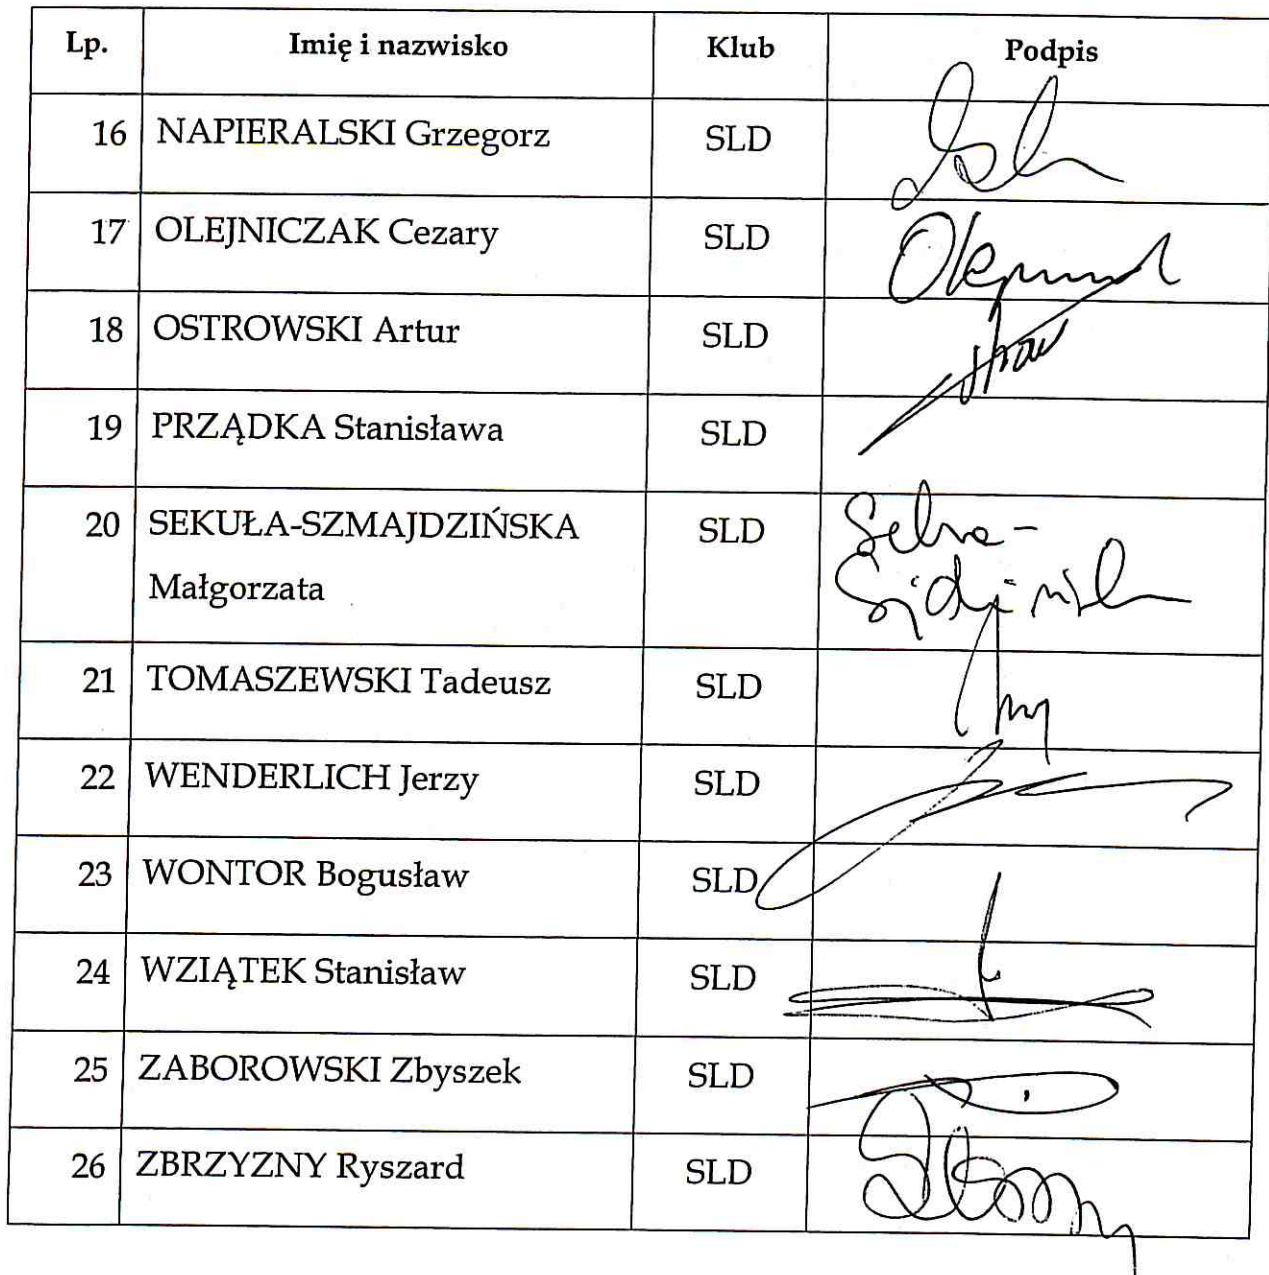 Lp. Imię i nazwisko Klub Podpis
16 NAPIERALSKI Grzegorz SLD
17 OLEJNICZAK Cezary SLD
18 OSTROWSKI Artur SLD
19 PRZĄDKA Stanisława SLD
20 SEKUŁA-SZMAJDZIŃSKA SLD
Małgorzata
21 TOMASZEWSKI Tadeusz SLD
22 WENDERLICH Jerzy SLD
23 WONTOR Bogusław SLD
24 WZIĄTEK Stanisław SLD
25 ZABOROWSKI Zbyszek SLD
26 ZBRZYZNY Ryszard SLD